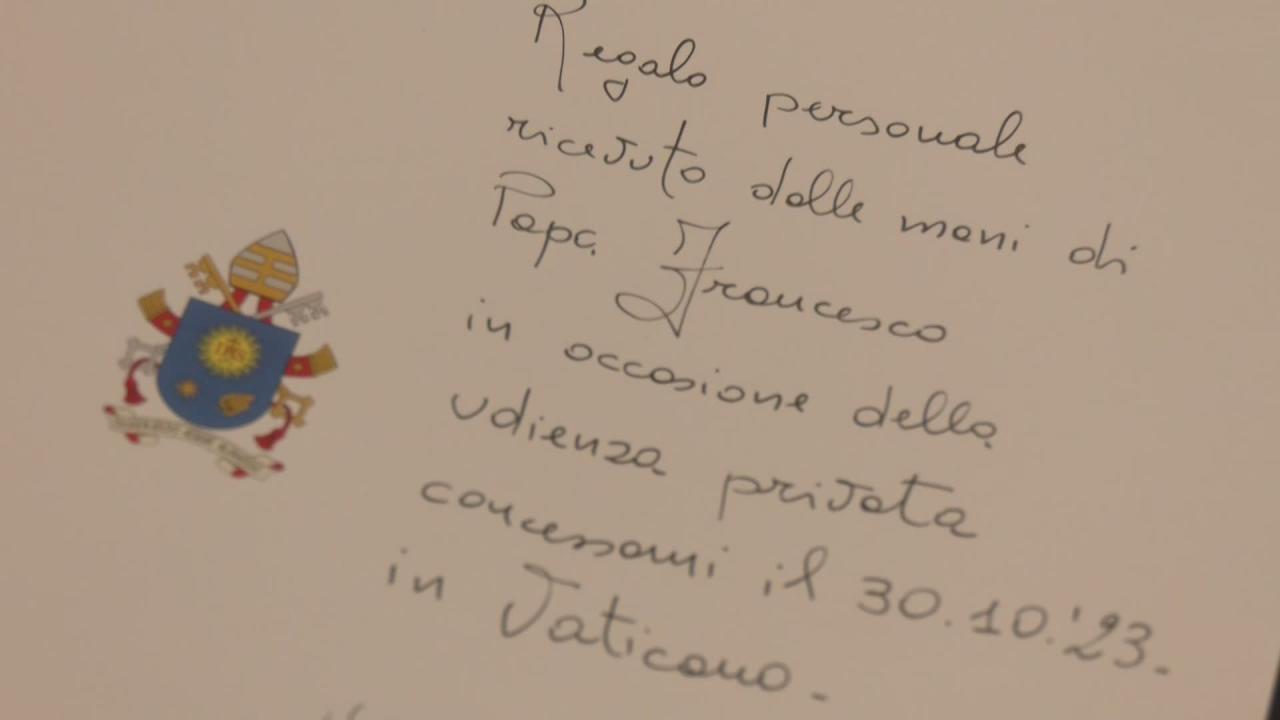 Regalo personale
ricevuto dalle mani di
Papa Francesco
in occasione della
udienza privata
concessami il 30.10.'23.
in Vaticano.
IHS